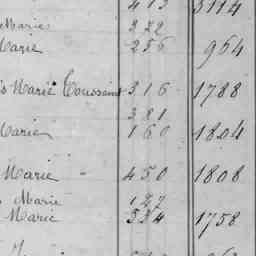 413 5114
Marie 272
Marie 256 964
Marie Toussaint 316 1788
381
Marie 160 1804
Marie 450 1808
Marie 127
Marie 334 1758